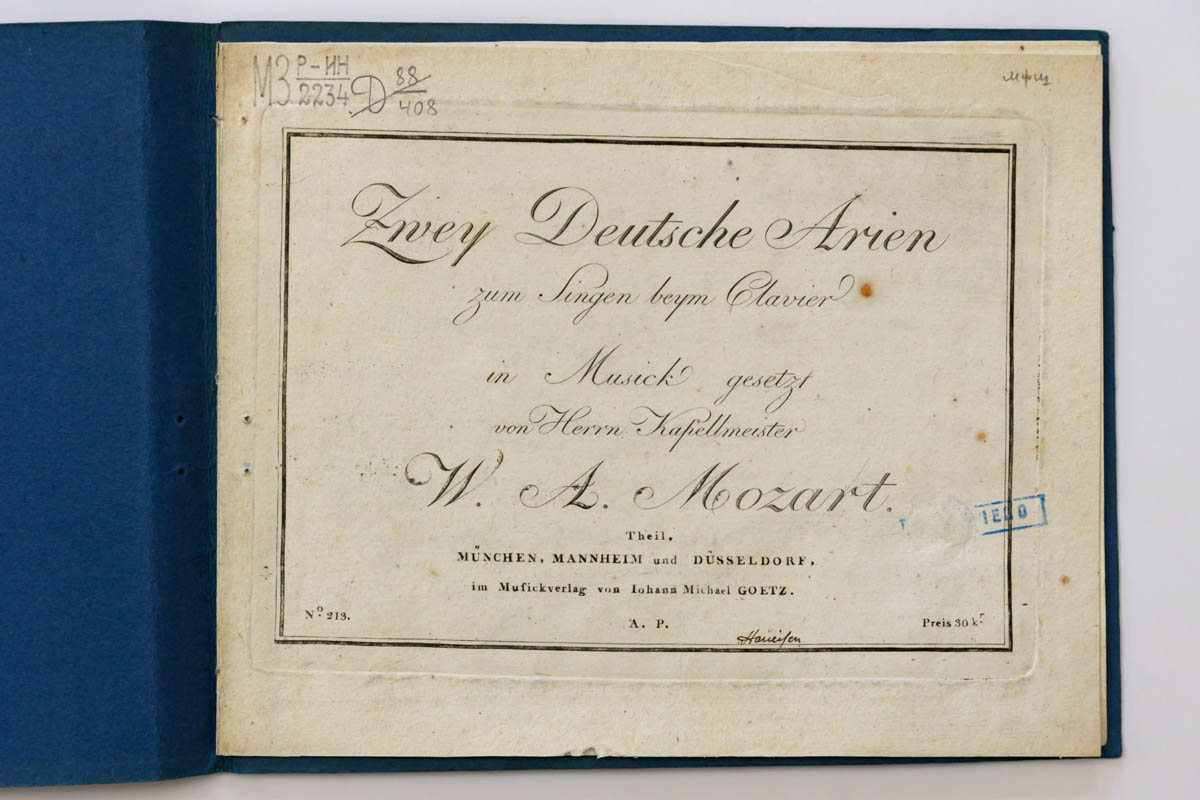 МЗ Р-ИН 2234 Д 88 408
МФЦ
Zwey Deutsche Arien
zum Singen beym Clavier
in Musick gesetzt
von Herrn Kapellmeister
W. A. Mozart.
Theil.
MÜNCHEN, MANNHEIM und DÜSSELDORF,
im Musickverlag von Iohann Michael GOETZ.
No. 213.
A. P.
Preis 30 kr.